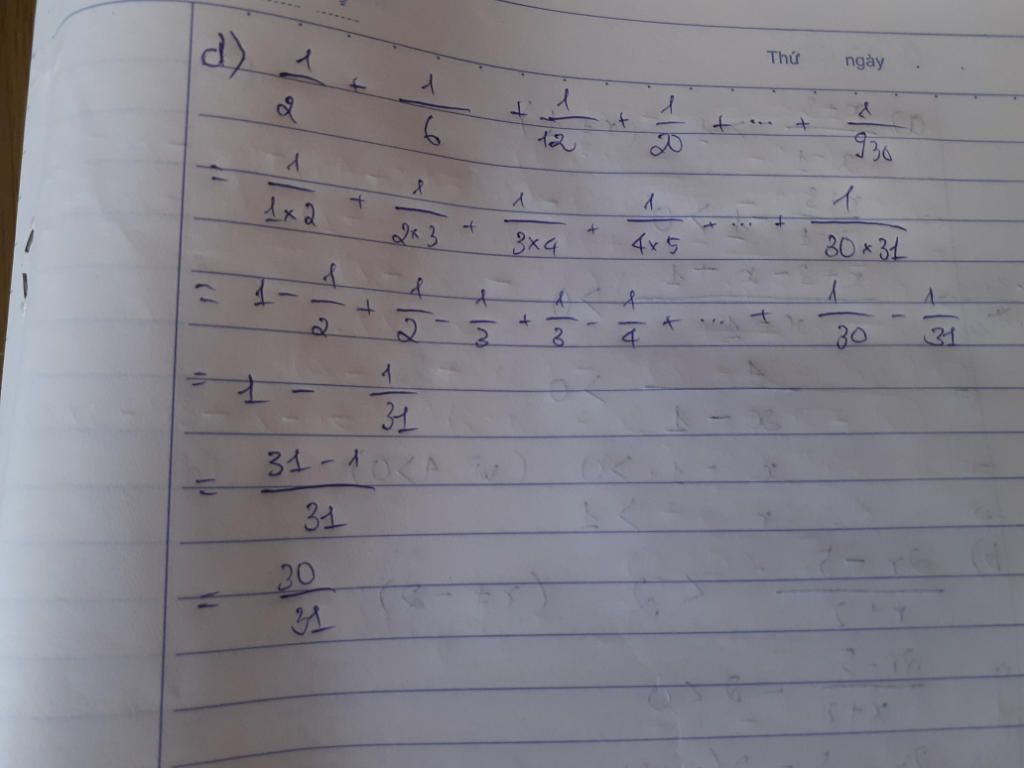 Thứ ngày
d) 1/2 + 1/6 + 1/12 + 1/20 + ... + 1/930
= 1/1×2 + 1/2×3 + 1/3×4 + 1/4×5 + ... + 1/30×31
= 1 - 1/2 + 1/2 - 1/3 + 1/3 - 1/4 + ... + 1/30 - 1/31
= 1 - 1/31
= 31 - 1/31
= 30/31